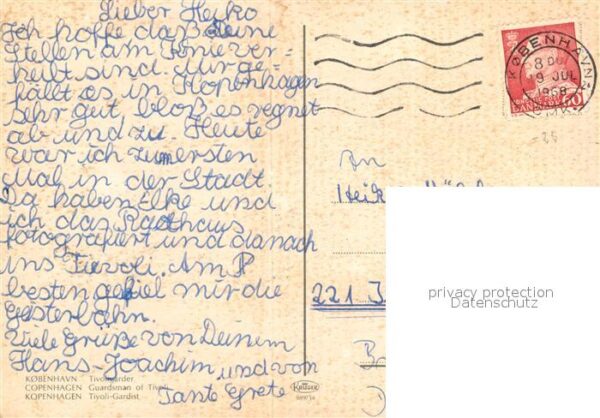 Lieber Heiko
Ich hoffe daß Deine
Stellen am Knie ver-
heilt sind. Mir ge-
fällt es in Kopenhagen
sehr gut bloß es regnet
ab und zu. Heute
war ich zum ersten
Mal in der Stadt.
Da haben Elke und
ich das Radhaus
fotografiert und danach
ins Tievoli. Am
besten gefiel mir die
Geisterbahn.
Viele Grüße von Deinem
Hans-Joachim und von
Tante Grete
KØBENHAVN Tivoligarder
COPENHAGEN Guardsman of Tivoli
KOPENHAGEN Tivoli-Gardist
KØBENHAVN
9 JUL
1968
An
221
privacy protection
Datenschutz